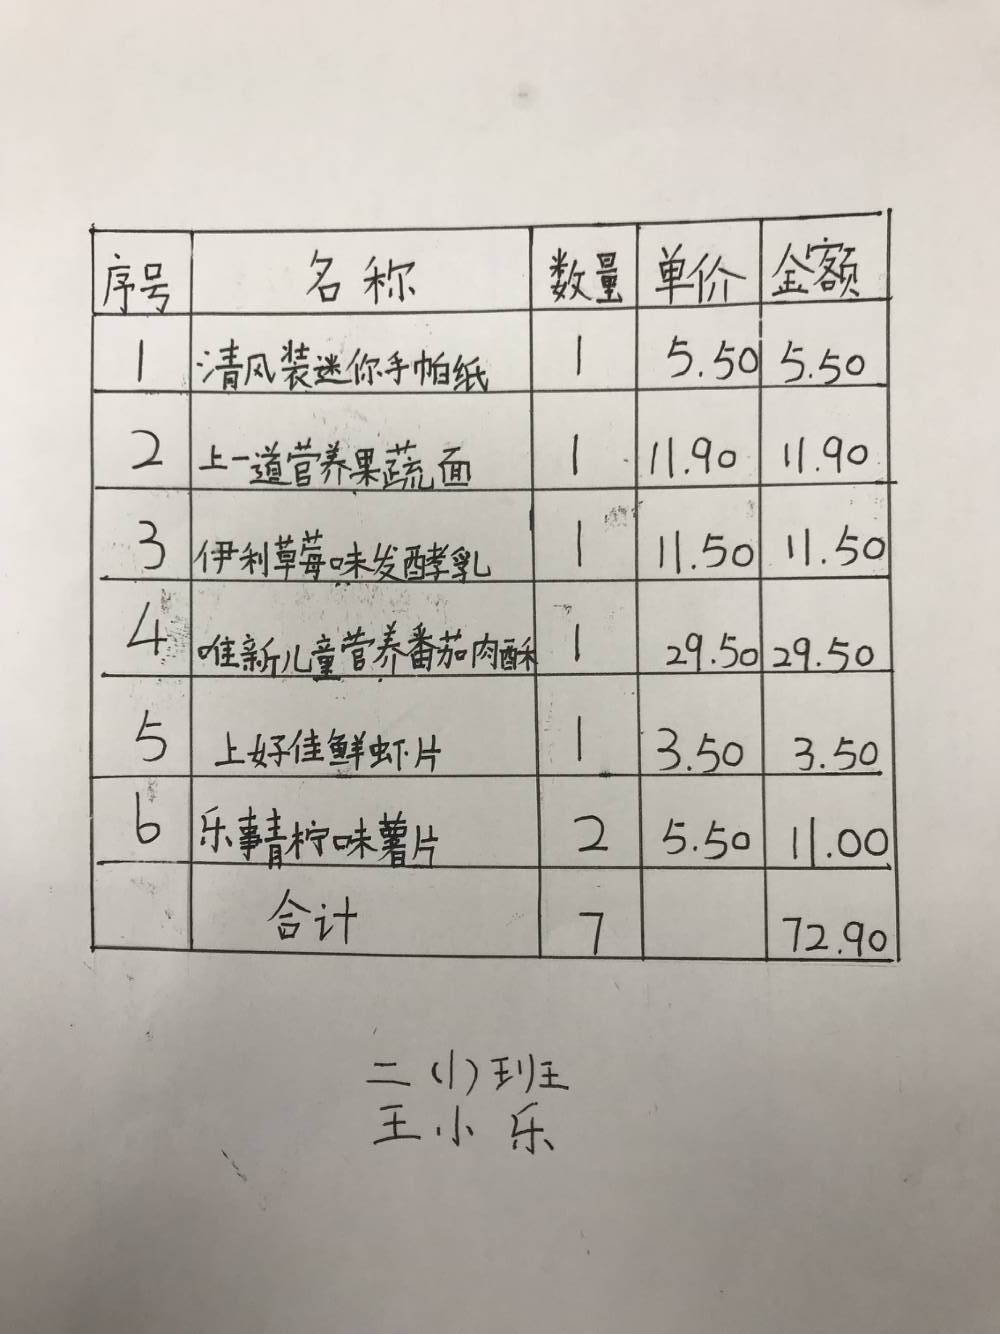 序号 名称 数量 单价 金额
1 清风装迷你手帕纸 1 5.50 5.50
2 上一道营养果蔬面 1 11.90 11.90
3 伊利草莓味发酵乳 1 11.50 11.50
4 唯新儿童营养番茄肉酥 1 29.50 29.50
5 上好佳鲜虾片 1 3.50 3.50
6 乐事青柠味薯片 2 5.50 11.00
合计 7 72.90
二(1)班
王小乐